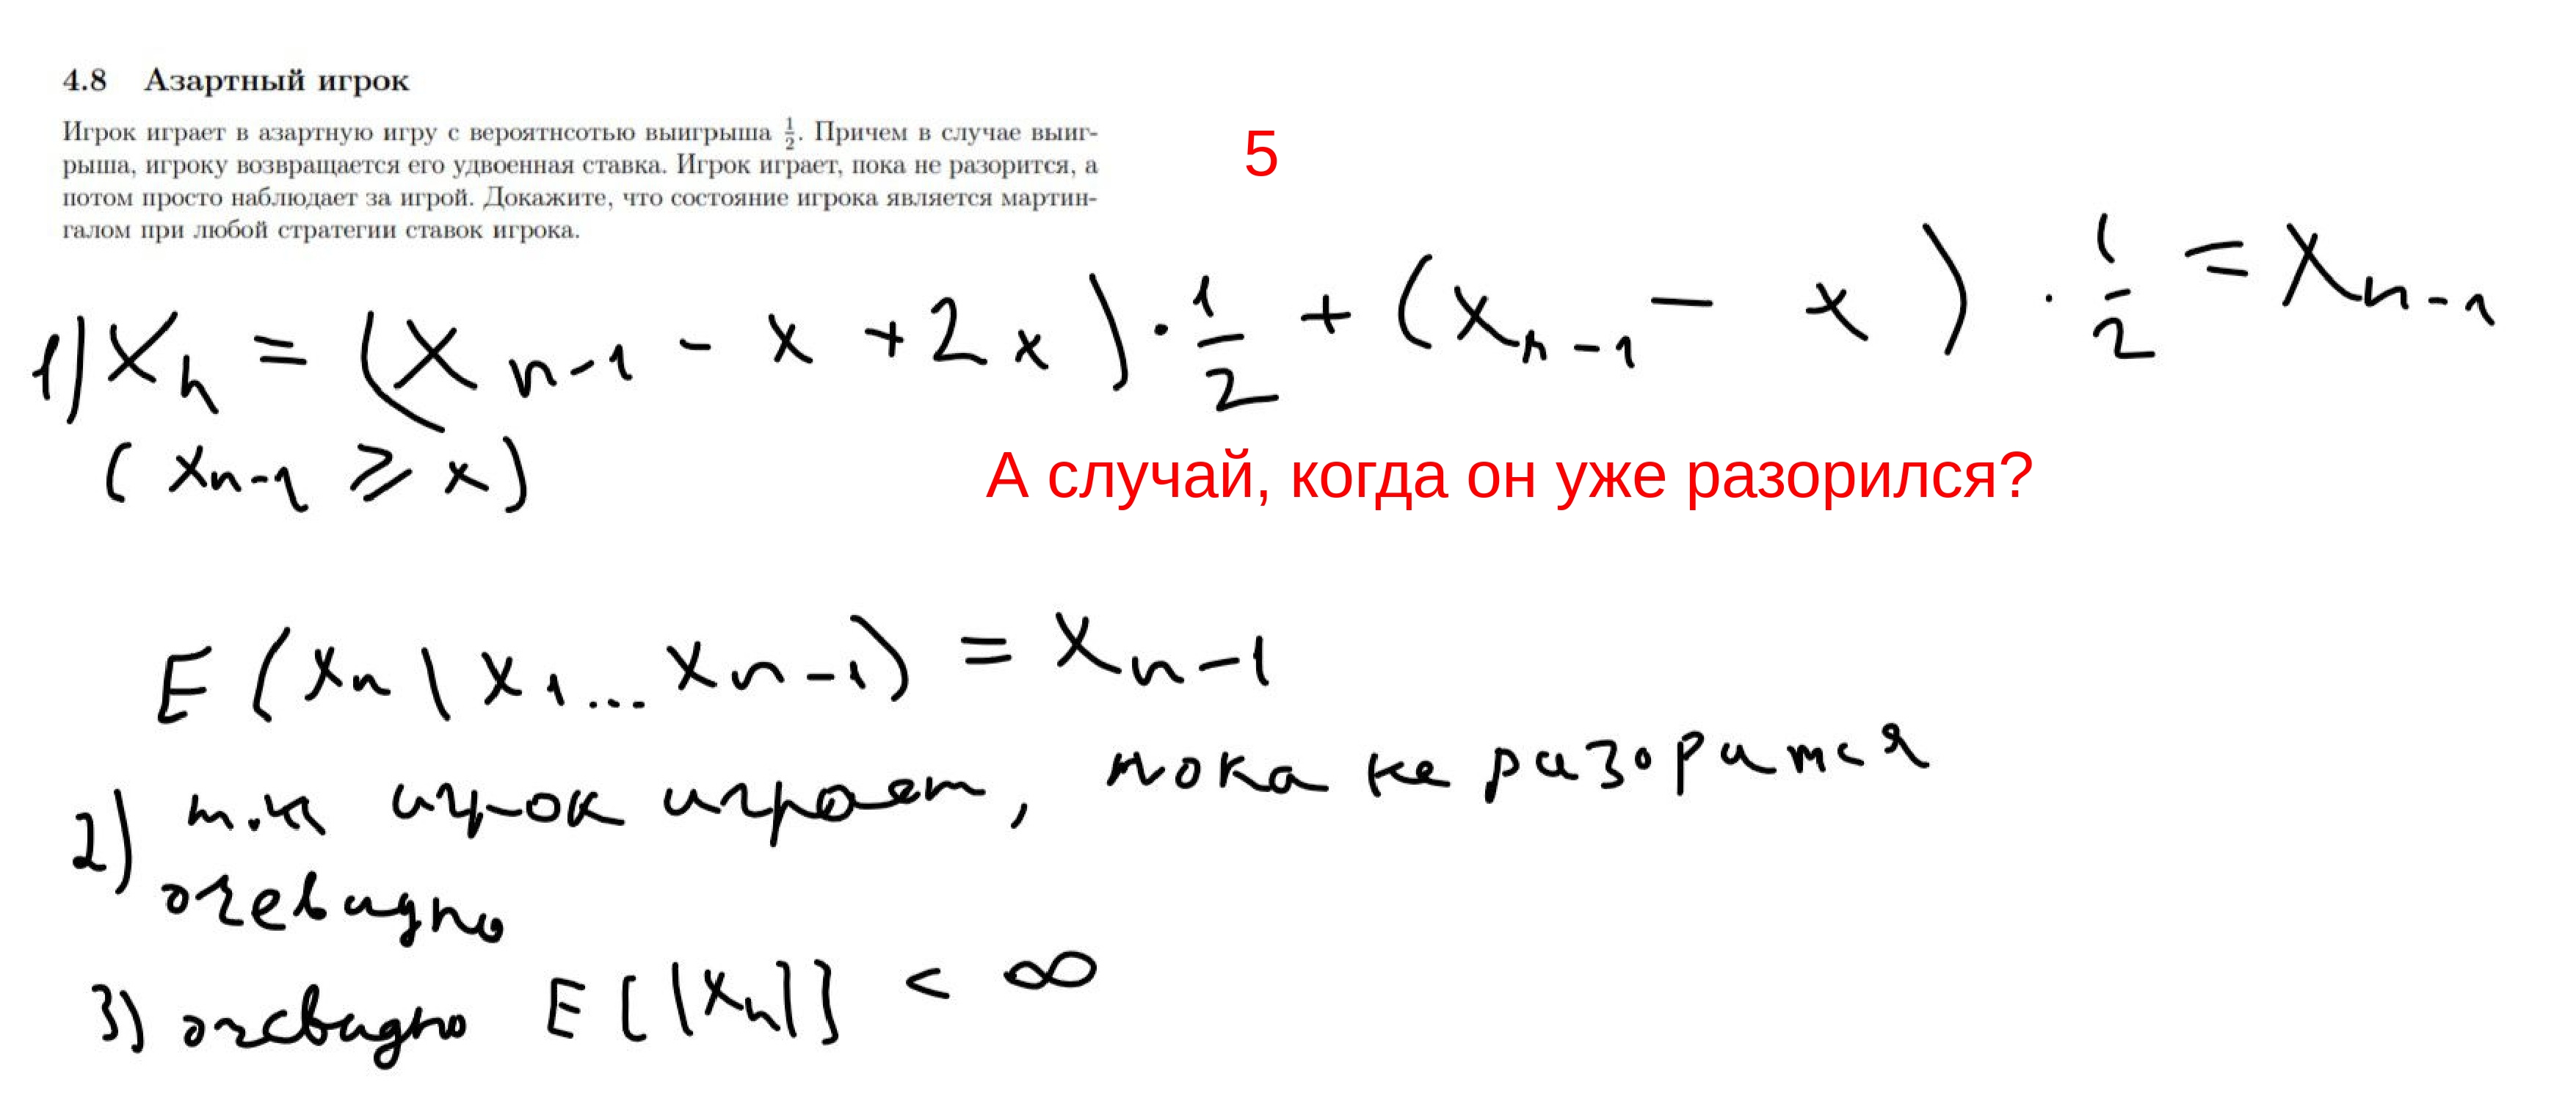 4.8 Азартный игрок
Игрок играет в азартную игру с вероятнсотью выигрыша 1/2. Причем в случае выиг-
рыша, игроку возвращается его удвоенная ставка. Игрок играет, пока не разорится, а
потом просто наблюдает за игрой. Докажите, что состояние игрока является мартин-
галом при любой стратегии ставок игрока.
5
1) X_n = (X_{n-1} - x + 2x) · 1/2 + (x_{n-1} - x) · 1/2 = X_{n-1}
(x_{n-1} ⩾ x)
А случай, когда он уже разорился?
E (x_n \ x_1 ... x_{n-1}) = x_{n-1}
2) т.к игрок играет, пока не разорится
очевидно
3) очевидно E[|x_n|] < ∞